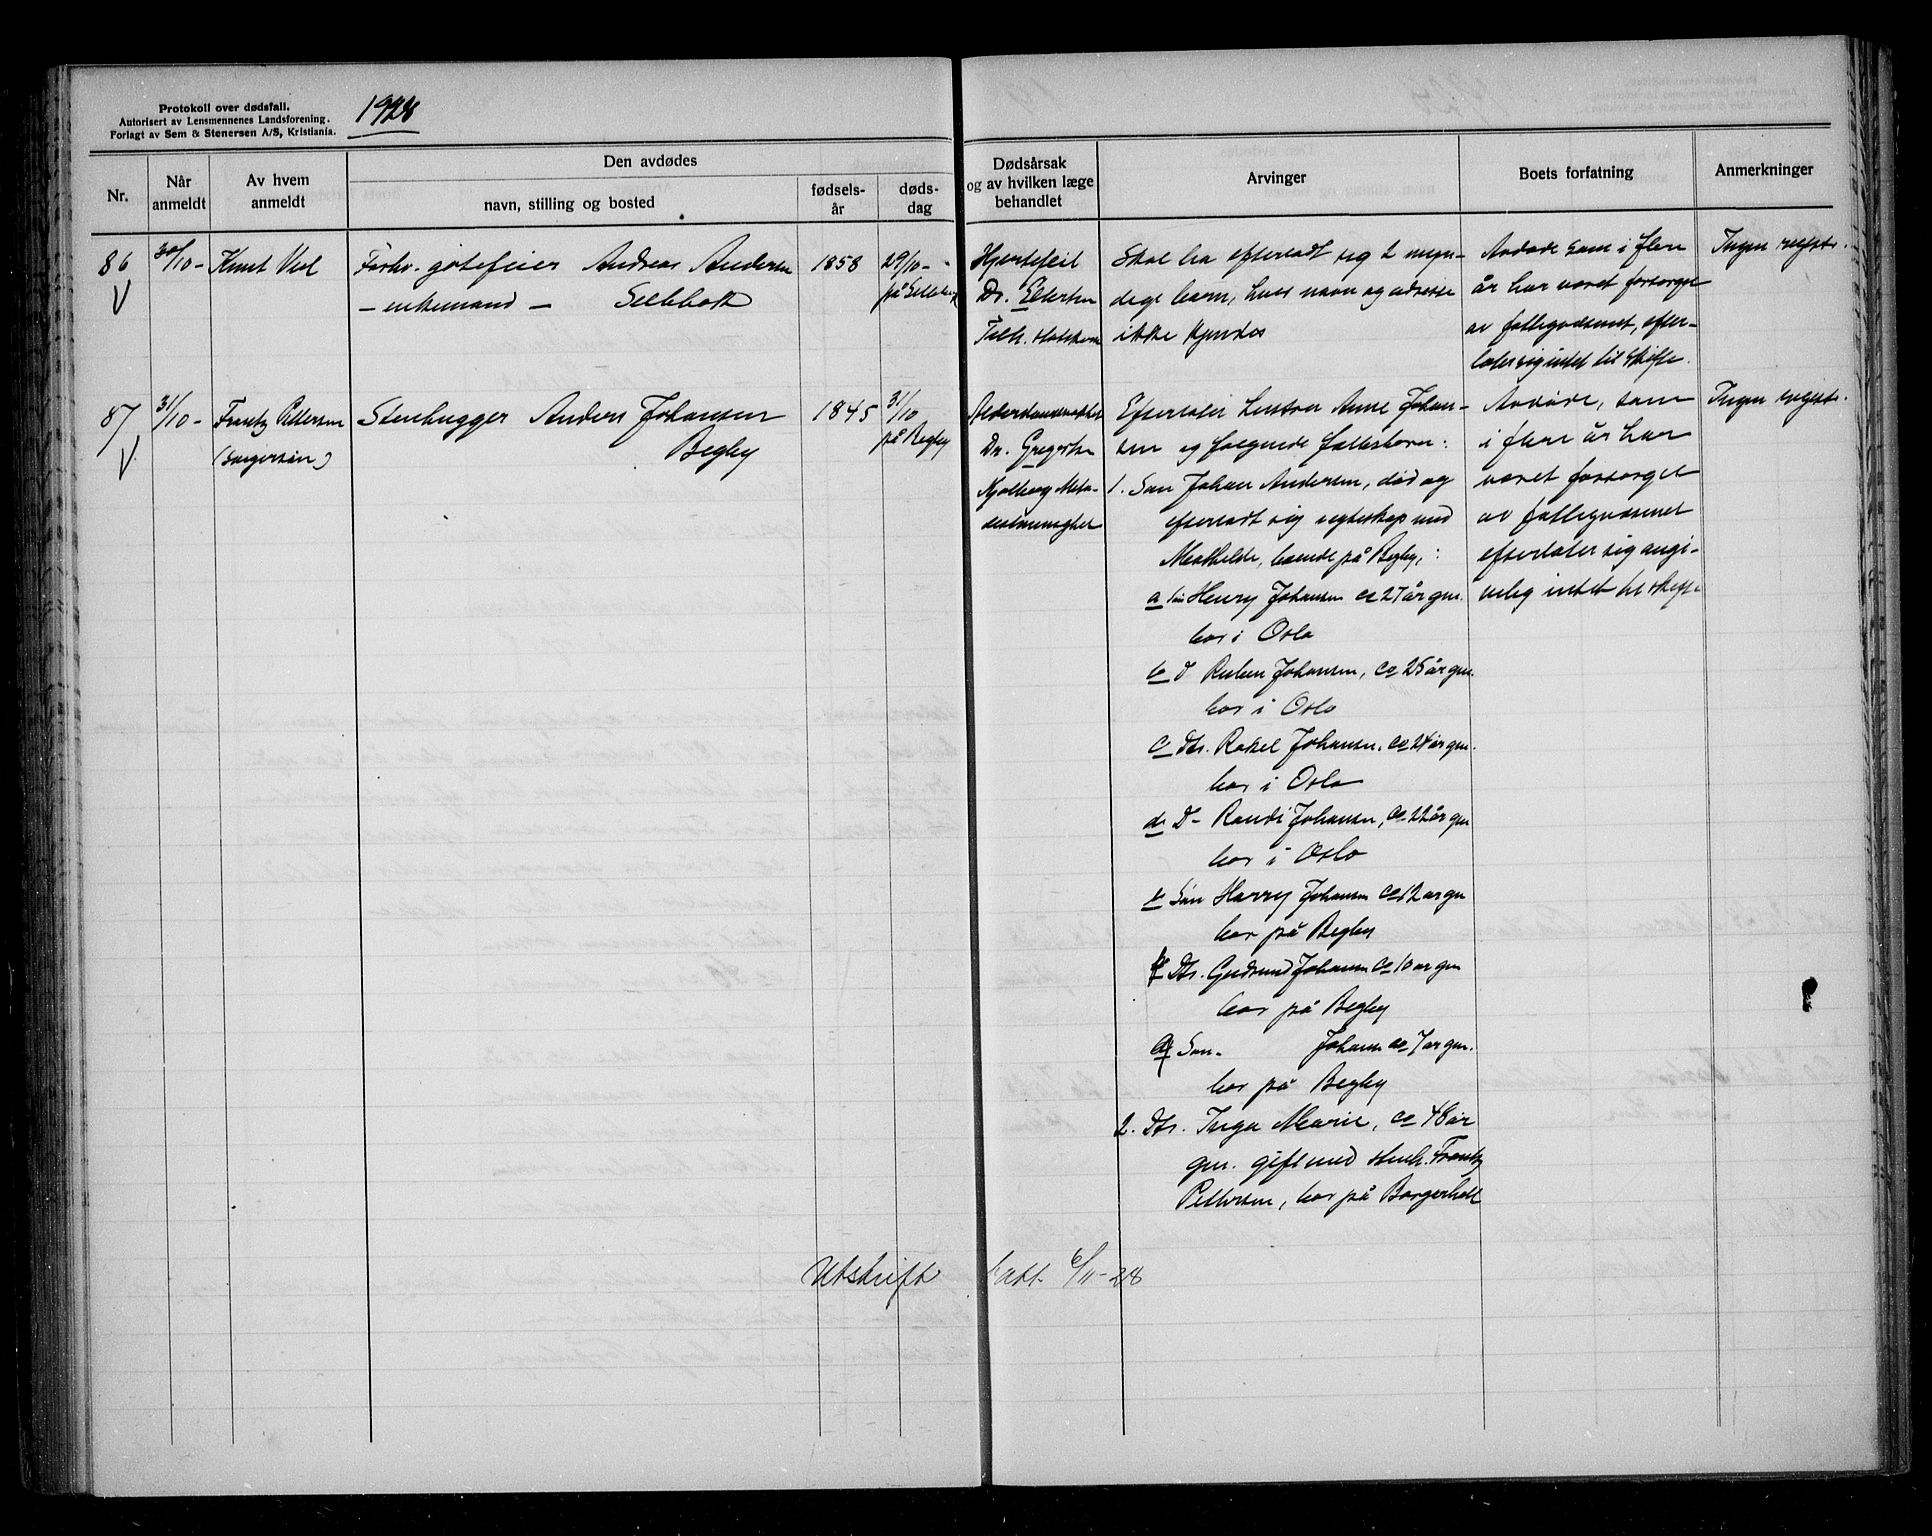 Protokoll over dødsfall.
Autorisert av Lensmennenes Landsforening.
Forlagt av Sem & Stenersen A/S, Kristiania.
1928
Nr.
Når anmeldt
Av hvem anmeldt
Den avdødes
navn, stilling og bosted
fødselsår
dødsdag
Dødsårsak
og av hvilken læge
behandlet
Arvinger
Boets forfatning
Anmerkninger
86
30/10-
Knut
Forhv. gatefeier Andreas Andersen
- enkemand - Sellebakk
1858
29/10-
på
Hjertefeil
Dr. Ellertsen
Skal ha efterladt sig 2 myn-
dige barn, hvis navn og adresse
ikke kjendes
Avdøde som i flere
år har været forsørget
av fattigvæsenet, efter-
later sig intet til skifte.
Ingen registr.
87
31/10-
Frantz Pettersen
(svigersøn)
Stenhugger Anders Johansen
Begby
1845
31/10
på Begby
Alderdomssvakhet
Dr. Gregertsen
Efterlater hustru Anne Johan-
sen og følgende fællesbarn:
1. Søn Johan Andersen, død og
efterladt sig i egteskap med
Mathilde, boende på Begby,:
a søn Henry Johansen ca 27 år gm.
bor i Oslo
b D Ruben Johansen, ca 25 år gm.
bor i Oslo
c Dtr. Rakel Johansen, ca 24 år gm.
bor i Oslo
d D- Randi Johansen, ca 22 år gm
bor i Oslo
e Søn Harry Johansen ca 12 år gm
bor på Begby
f Dtr. Gudrund Johansen ca 10 år gm
bor på Begby
g Søn- Johansen ca 7 år gm.
bor på Begby
2. Dtr. Inga Marie, ca 48 år
gm. gift med stenh. Frantz
Pettersen, bor på Borgerhall
Avdøde, som
i flere år har
været forsørget
av fattigvæsenet
efterlater sig angi-
velig intet til skifte
Ingen registr.
Utskrift satt 6/11-28